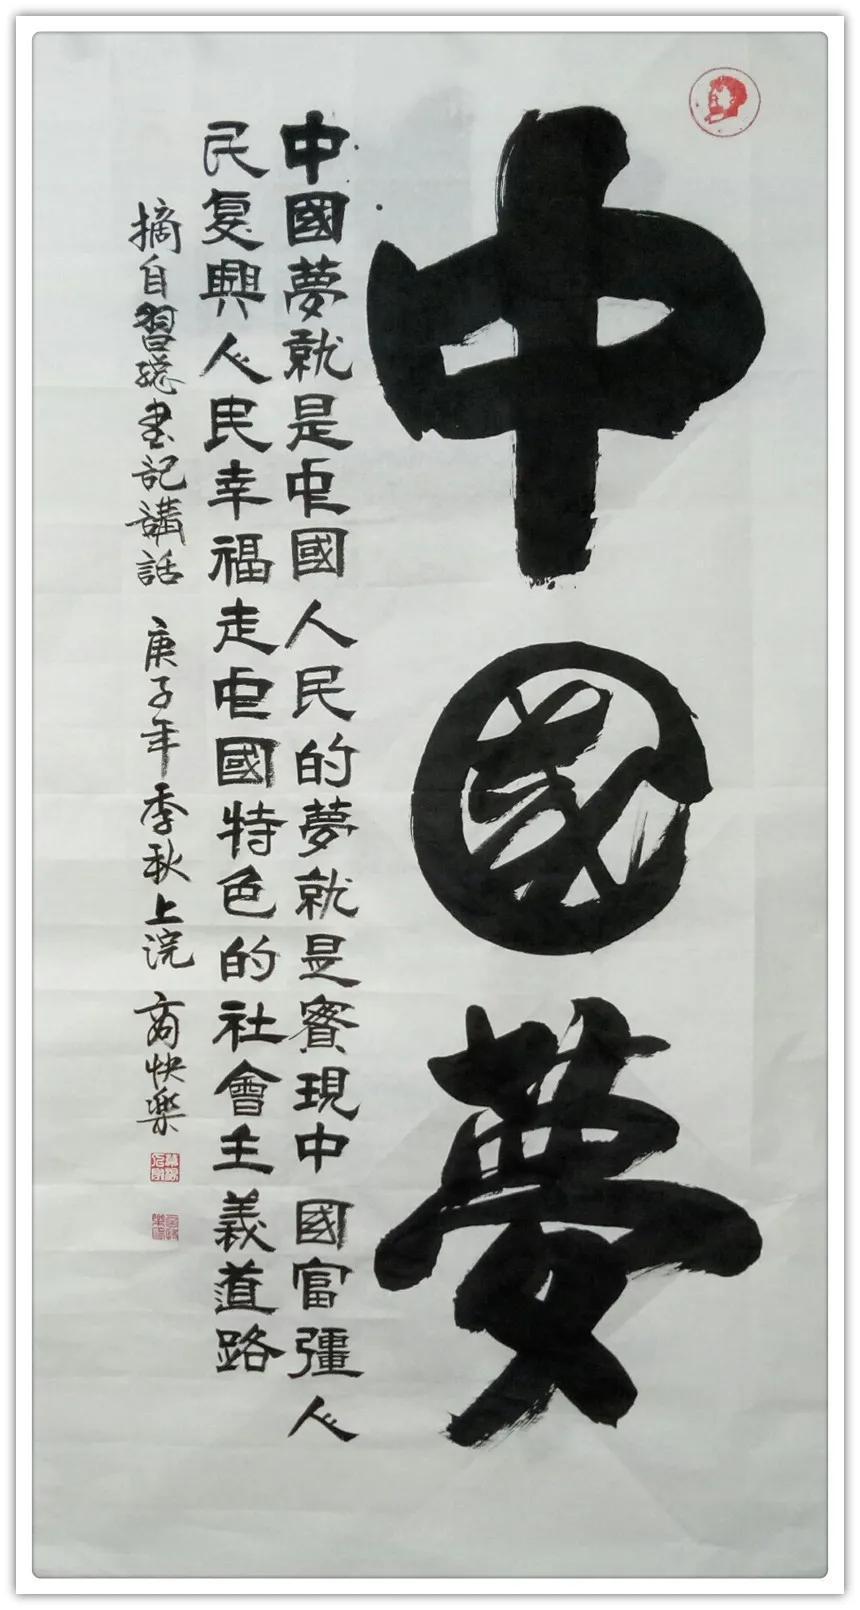 中國夢
中國夢就是中國人民的夢就是實現中國富彊人
民复興人民幸福走中國特色的社會主義道路
摘自習總書記講話 庚子年季秋上浣 商快樂